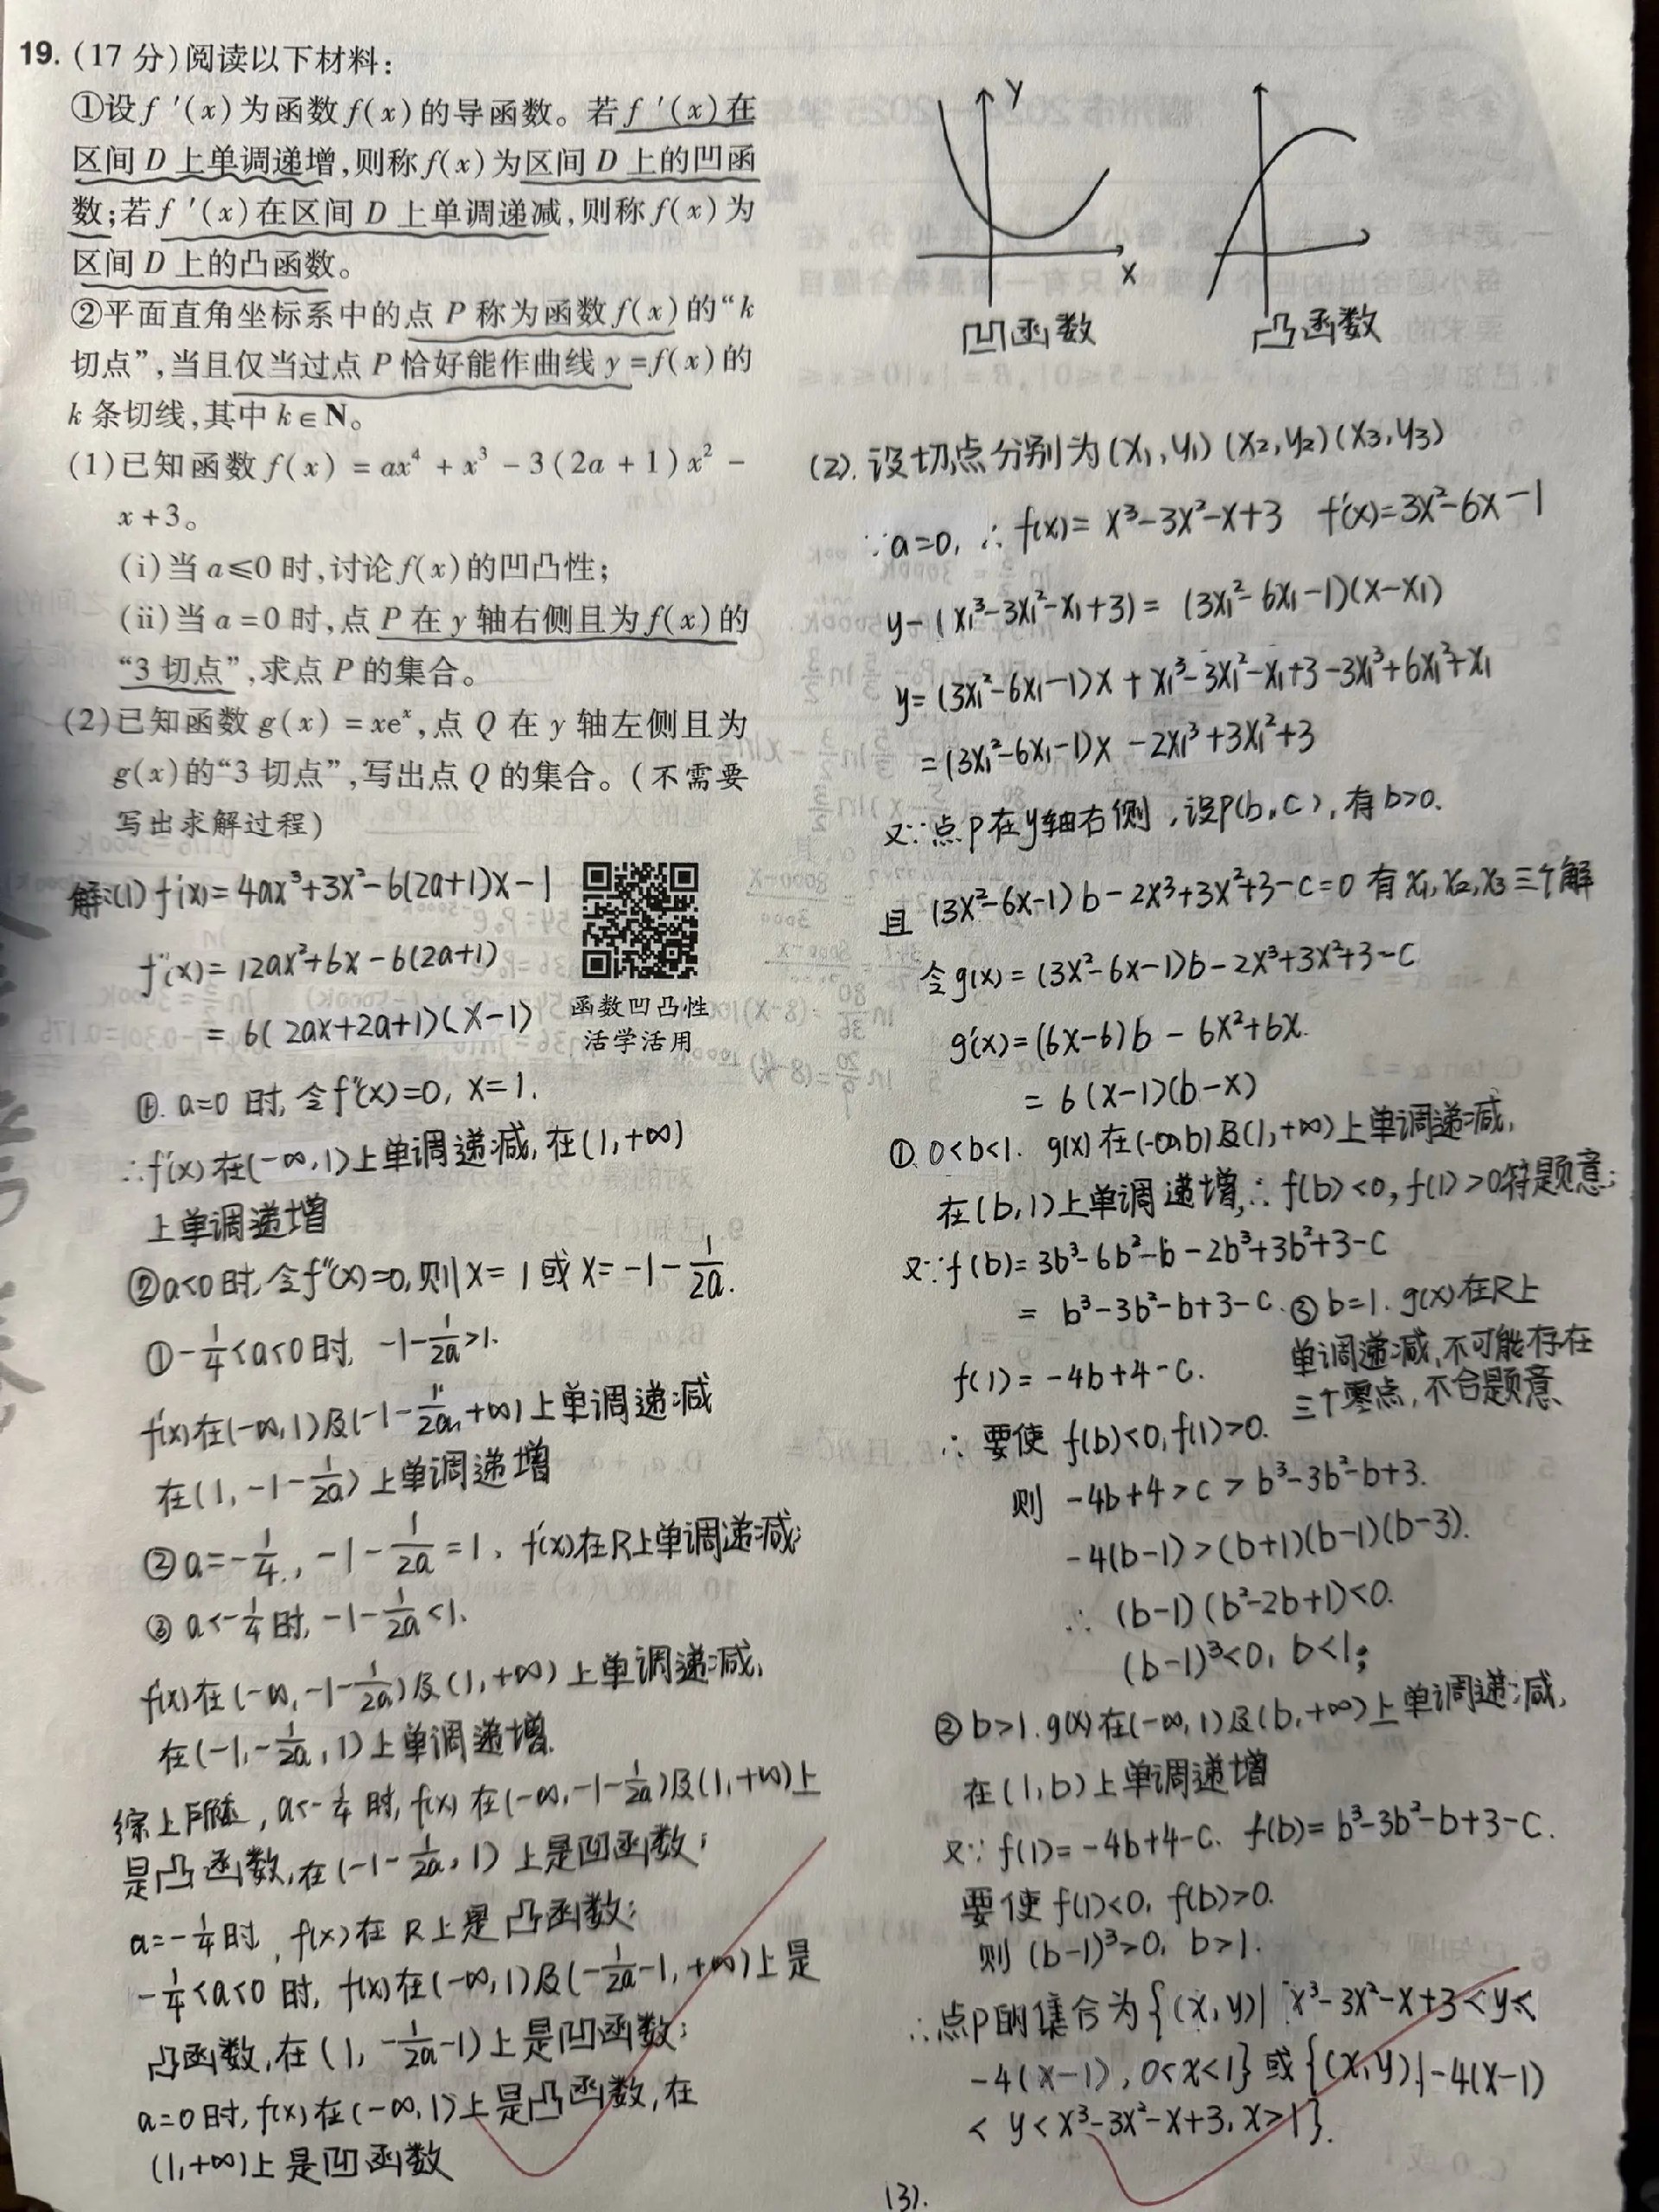 19. (17 分)阅读以下材料:
①设 f ′(x) 为函数 f(x) 的导函数。若 f ′(x) 在
区间 D 上单调递增,则称 f(x) 为区间 D 上的凹函
数;若 f ′(x) 在区间 D 上单调递减,则称 f(x) 为
区间 D 上的凸函数。
②平面直角坐标系中的点 P 称为函数 f(x) 的“k
切点”,当且仅当过点 P 恰好能作曲线 y = f(x) 的
k 条切线,其中 k∈N。
(1)已知函数 f(x) = ax⁴ + x³ - 3(2a + 1)x² -
x + 3。
(i)当 a≤0 时,讨论 f(x) 的凹凸性;
(ii)当 a = 0 时,点 P 在 y 轴右侧且为 f(x) 的
“3 切点”,求点 P 的集合。
(2)已知函数 g(x) = xeˣ,点 Q 在 y 轴左侧且为
g(x) 的“3 切点”,写出点 Q 的集合。(不需要
写出求解过程)
函数凹凸性
活学活用
解:(1) f′(x)= 4ax³+3x²-6(2a+1)x-1
f″(x)= 12ax²+6x-6(2a+1)
= 6(2ax+2a+1)(x-1)
①. a=0 时, 令f″(x)=0, x=1.
∴f′(x)在(-∞,1)上单调递减, 在(1,+∞)
上单调递增
②a<0时,令f″(x)=0,则x=1或x=-1-1/2a.
①-1/4<a<0时, -1-1/2a>1.
f′(x)在(-∞,1)及(-1-1/2a,+∞)上单调递减
在(1,-1-1/2a)上单调递增
②a=-1/4, -1-1/2a=1, f′(x)在R上单调递减;
③ a<-1/4时, -1-1/2a<1.
f′(x)在(-∞,-1-1/2a)及(1,+∞)上单调递减,
在(-1-1/2a,1)上单调递增.
综上所述, a<-1/4时, f(x)在(-∞,-1-1/2a)及(1,+∞)上
是凸函数,在(-1-1/2a,1)上是凹函数;
a=-1/4时, f(x)在R上是凸函数;
-1/4<a<0时, f(x)在(-∞,1)及(-1/2a-1,+∞)上是
凸函数,在(1,-1/2a-1)上是凹函数;
a=0时,f(x)在(-∞,1)上是凸函数,在
(1,+∞)上是凹函数
y
x
凹函数
凸函数
(2). 设切点分别为(x₁,y₁)(x₂,y₂)(x₃,y₃)
∵a=0, ∴f(x)= x³-3x²-x+3 f′(x)=3x²-6x-1
y-(x₁³-3x₁²-x₁+3)= (3x₁²-6x₁-1)(x-x₁)
y=(3x₁²-6x₁-1)x+x₁³-3x₁²-x₁+3-3x₁³+6x₁²+x₁
=(3x₁²-6x₁-1)x-2x₁³+3x₁²+3
又∵点P在y轴右侧,设P(b,c),有b>0.
且(3x²-6x-1)b-2x³+3x²+3-c=0有x₁,x₂,x₃三个解
令g(x)=(3x²-6x-1)b-2x³+3x²+3-c
g′(x)=(6x-6)b-6x²+6x.
= 6(x-1)(b-x)
①. 0<b<1. g(x)在(-∞,b)及(1,+∞)上单调递减,
在(b,1)上单调递增,∴f(b)<0,f(1)>0符题意;
又∵f(b)=3b³-6b²-b-2b³+3b²+3-c
= b³-3b²-b+3-c.
f(1)=-4b+4-c.
③b=1. g(x)在R上
单调递减,不可能存在
三个零点,不合题意
∴要使f(b)<0,f(1)>0.
则 -4b+4>c>b³-3b²-b+3.
-4(b-1)>(b+1)(b-1)(b-3).
∴(b-1)(b²-2b+1)<0.
(b-1)³<0, b<1;
②b>1. g(x)在(-∞,1)及(b,+∞)上单调递减,
在(1,b)上单调递增
又∵f(1)=-4b+4-c. f(b)=b³-3b²-b+3-c.
要使f(1)<0, f(b)>0.
则(b-1)³>0, b>1.
∴点P的集合为{(x,y)|x³-3x²-x+3<y<
-4(x-1),0<x<1}或{(x,y)|-4(x-1)
<y<x³-3x²-x+3,x>1}.
(3).